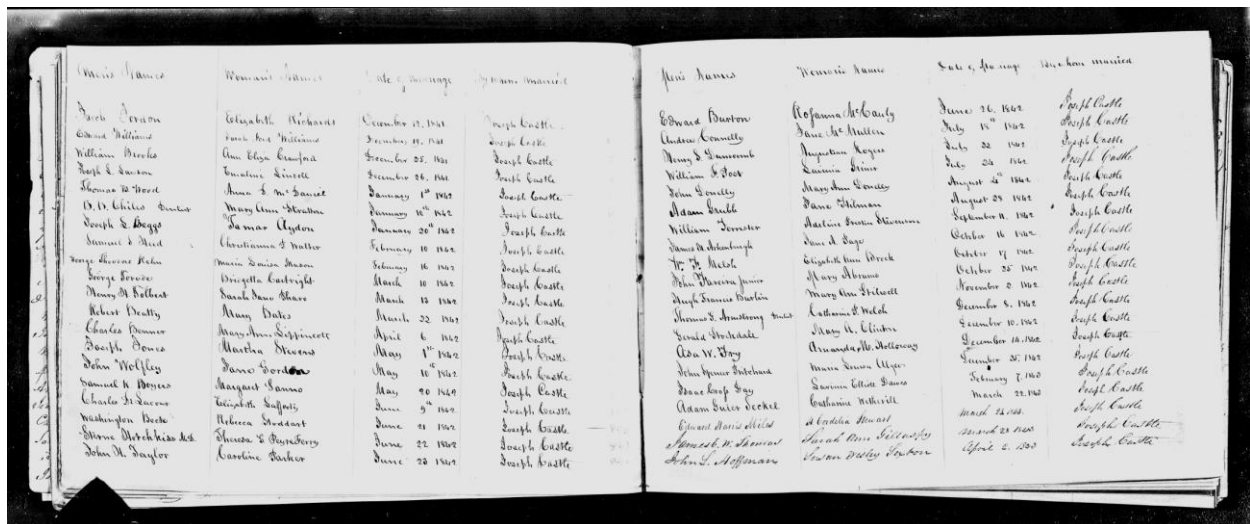 Men's Names Woman's Names Date of Marriage By whom married
Jacob Gordon Elizabeth Richards December 12, 1841 Joseph Castle
Edward Williams Sarah Williams December 19, 1841 Joseph Castle
William Brooks Ann Eliza Crawford December 25, 1841 Joseph Castle
Joseph L. Emaline Lincoln December 26, 1841 Joseph Castle
Thomas W. Wood Anna L. McDaniel January 1st 1842 Joseph Castle
Chiles Mary Ann Stratton January 1842 Joseph Castle
Joseph L. Beggs Tamar Aydon January 20th 1842 Joseph Castle
Samuel J. Reed Christianna F. Walter February 10 1842 Joseph Castle
George Rehn Maria Louisa Mason February 16 1842 Joseph Castle
George Bridgetta Cartright March 10 1842 Joseph Castle
Henry H. Tolbert Sarah Jane Sharo March 13 1842 Joseph Castle
Robert Beatty Mary Bates March 22 1842 Joseph Castle
Charles Bonner Mary Ann Lippincott April 6 1842 Joseph Castle
Joseph Jones Martha Stevens May 1st 1842 Joseph Castle
John Wolfley Jane Gordon May 10th 1842 Joseph Castle
Samuel K. Boyers Margaret Janno May 20 1842 Joseph Castle
Charles Elizabeth Lafferty June 9th 1842 Joseph Castle
Washington Rebecca Stoddart June 21 1842 Joseph Castle
Hotchkiss M.D. Theresa E. June 22 1842 Joseph Castle
John W. Taylor Caroline Parker June 23 1842 Joseph Castle
Men's Names Woman's Names Date of Marriage By whom married
Edward Burton Rosanna McCauly June 26, 1842 Joseph Castle
Andrew Connelly Jane McMullen July 18th 1842 Joseph Castle
Henry S. Dunscomb Augustian Rogers July 1842 Joseph Castle
William F. Post Lavinia Griner July 24 1842 Joseph Castle
John Donelly Mary Ann Donelly August 1842 Joseph Castle
Adam Grubb Jane Hilman August 28 1842 Joseph Castle
William Forrester Stevenson September 11, 1842 Joseph Castle
James Jane A. Gage October 16 1842 Joseph Castle
Wm. F. Welsh Elizabeth Ann Brock October 17 1842 Joseph Castle
John Junior Mary Abrams October 25 1842 Joseph Castle
Hugh Francis Mary Ann Stilwell November 1842 Joseph Castle
Thomas S. Armstrong Catharine F. Welsh December 8, 1842 Joseph Castle
Gerald Stockdale Mary A. Clinton December 10, 1842 Joseph Castle
Asa W. Fry Amanda M. Holloway December 14, 1842 Joseph Castle
John Pritchard Maria Louisa December 25, 1842 Joseph Castle
Isaac Day Lavinia Elliott February 7, 1843 Joseph Castle
Adam Catharine March 22, 1843 Joseph Castle
Edward Harris Miles A Cordelia Stewart March 1843 Joseph Castle
James C. W. Thomas Sarah Ann March 23 1843 Joseph Castle
John L. Hoffman Susan Wesley Sexton April 2. 1843 Joseph Castle